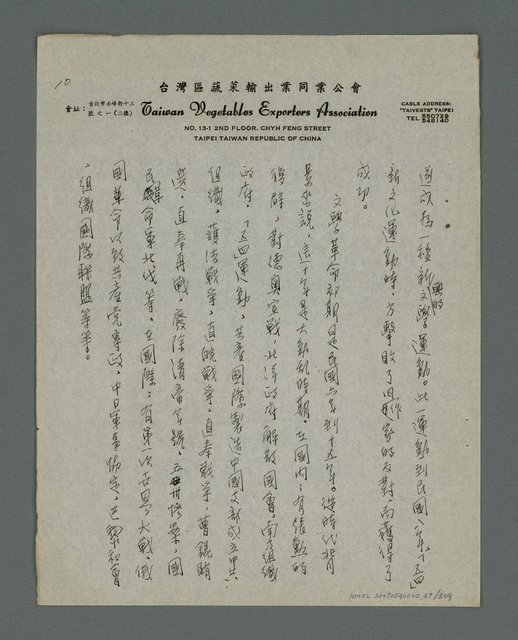 10
台灣區蔬菜輸出業同業公會
會址：台北市赤峰街十三號之一(二樓)
Taiwan Vegetables Exporters Association
NO. 13-1 2ND FLOOR. CHYH FENG STREET
TAIPEI TAIWAN REPUBLIC OF CHINA
CABLE ADDRESS:
"TAIVEGTS" TAIPEI
TEL 550729
548140
遂成為一種新興的文學運動。此一運動到民國八年「五四」
新文化運動時，方擊敗了舊作家的反對，而獲得了
成功。
文學革命初期是民國六年到十五年。從時代背
景來說，這十年是大動亂時期。在國內：有張勳的
復辟，對德奧宣戰，北洋政府解散國會，南方組織
政府，「五四運動」，共產國際製造中國支部成立中共
組織，護法戰爭，直皖戰爭，直奉戰爭，曹錕賄
選，直奉再戰，廢除清帝年號，五卅慘案，國
民革命軍北伐等。在國際：有第一次世界大戰，俄
國革命以致共產黨專政，中日軍事協定，巴黎和會
，組織國際聯盟等等。
NMTL 20070590002,27/509